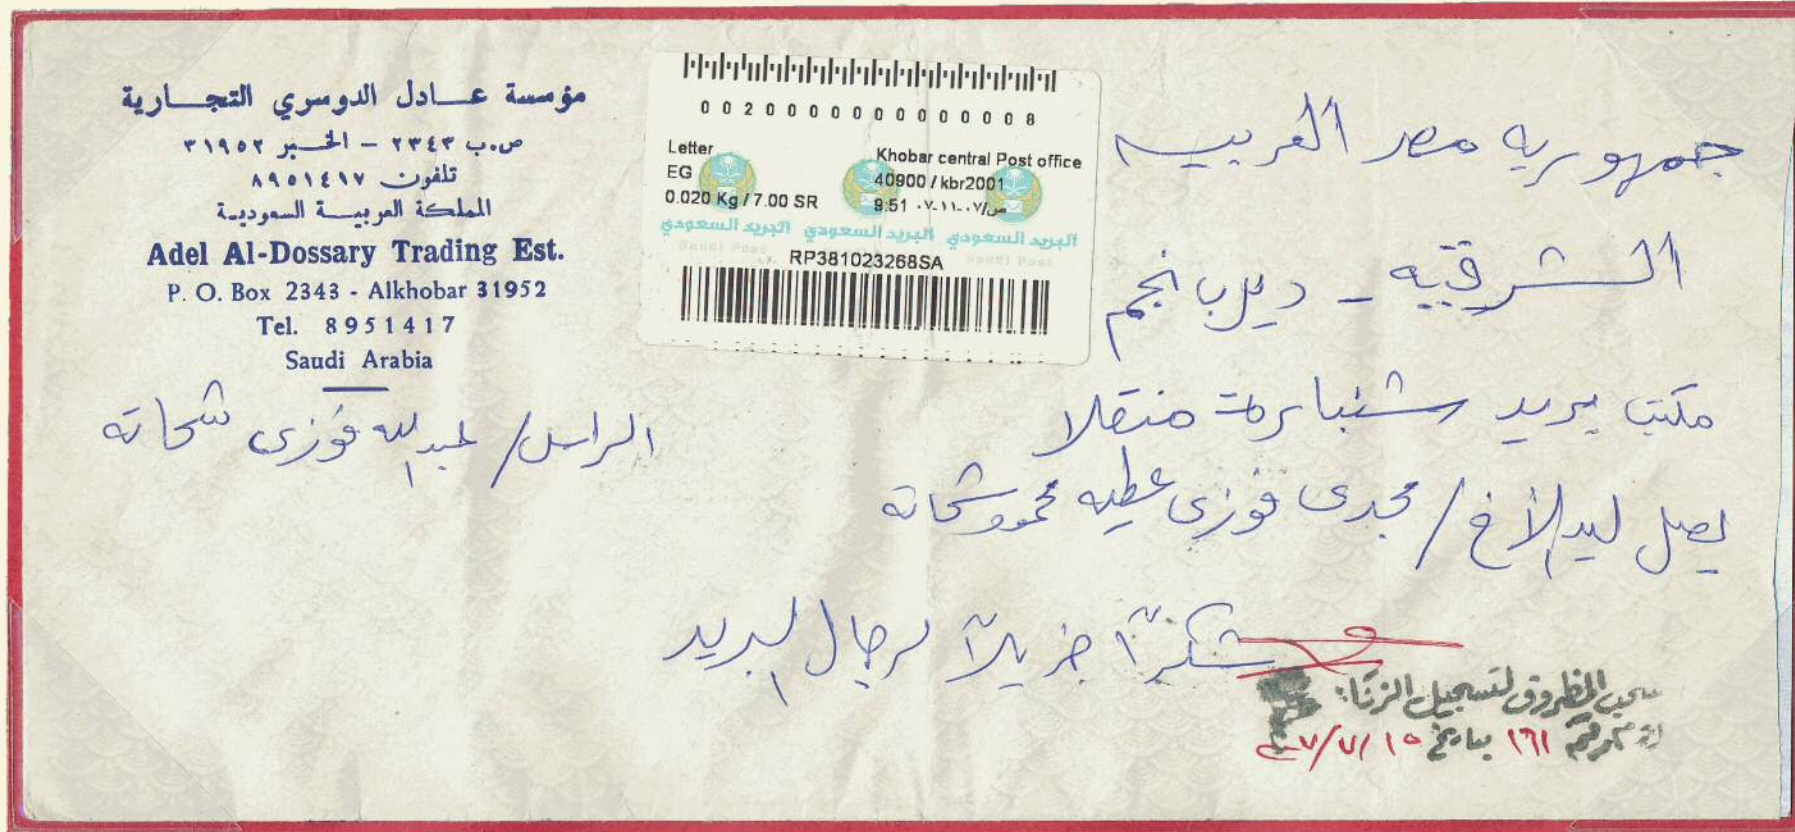 مؤسسة عـــادل الدوسري التجـــارية
ص.ب ٢٣٤٣ – الخـــبر ٣١٩٥٢
تلفون ٨٩٥١٤١٧
المملكة العربيـــة السعوديـة
Adel Al-Dossary Trading Est.
P. O. Box 2343 - Alkhobar 31952
Tel. 8951417
Saudi Arabia
الراسل/ عبد الله فوزى شحاته
0020000000000008
Letter
Khobar central Post office
EG
40900 / kbr2001
0.020 Kg / 7.00 SR
9:51 ٠٧-١١-٠٧/ص
البريد السعودي البريد السعودي البريد السعودي
Saudi Post Saudi Post
RP381023268SA
جمهوريه مصر العربيه
الشرقيه - ديرب نجم
مكتب بريد شنبارة منقلا
يصل ليد الأخ / مجدى فوزى عطيه محمود شحاته
شكراً جزيلاً لرجال البريد
المظروف لتسجيل
١٦١ بتاريخ ١٥/٧/